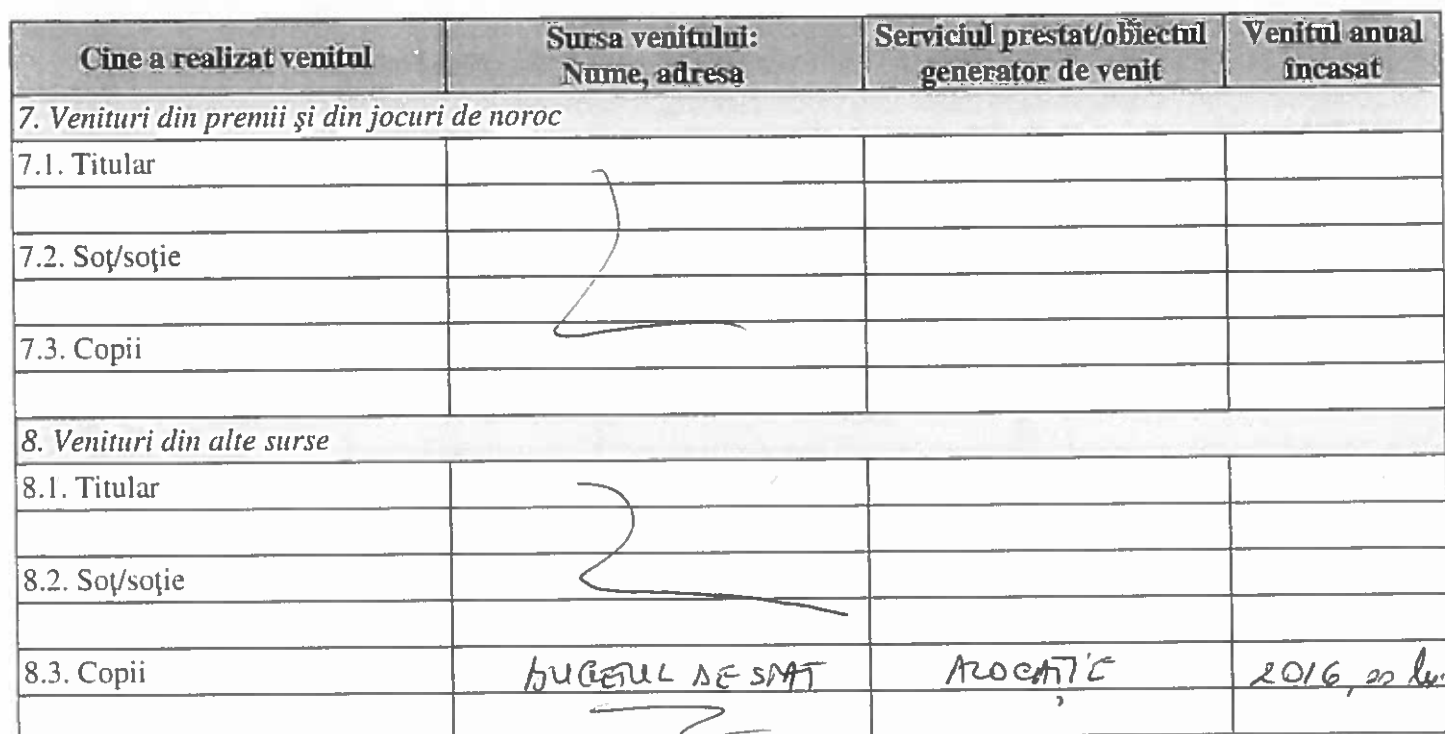 Cine a realizat venitul
Sursa venitului:
Nume, adresa
Serviciul prestat/obiectul
generator de venit
Venitul anual
încasat
7. Venituri din premii şi din jocuri de noroc
7.1. Titular
7.2. Soţ/soţie
7.3. Copii
8. Venituri din alte surse
8.1. Titular
8.2. Soţ/soţie
8.3. Copii BUGETUL DE STAT ALOCAȚIE 2016, 00 lei